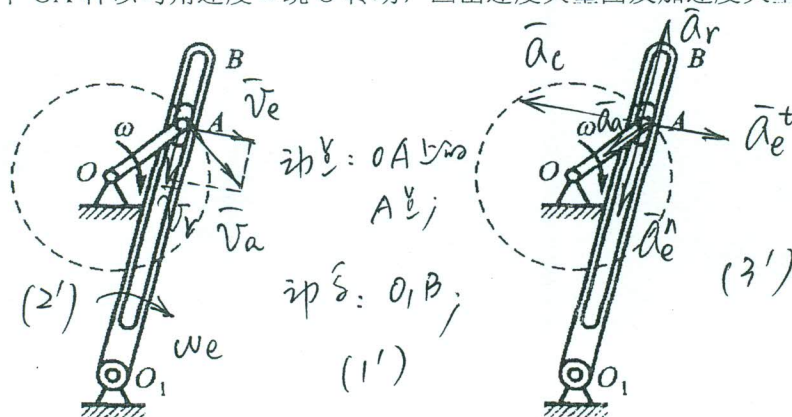 OA
B
v̄e
A
ω
O
v̄r
v̄a
(2')
ωe
O₁
动点: OA上的
A点;
动系: O₁B;
(1')
āc
ār
B
āa
A
ω
āeᵗ
O
āeⁿ
(3')
O₁